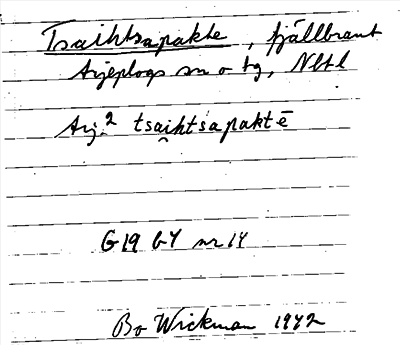 Tsaihtsapakte, fjällbrant
Arjeplogs sn o tg, Nbtl
Arj.2 tsaihtsapaktē
G19 b4 nr 14
Bo Wickman 1942